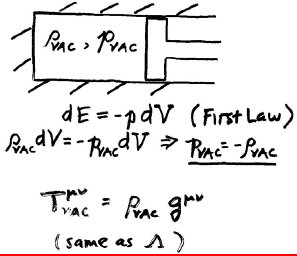 ρVAC, pVAC
dE = -p dV (First Law)
ρVAC dV = -pVAC dV ⇒ pVAC = -ρVAC
Tᵘᵛ VAC = ρVAC gᵘᵛ
(same as Λ)